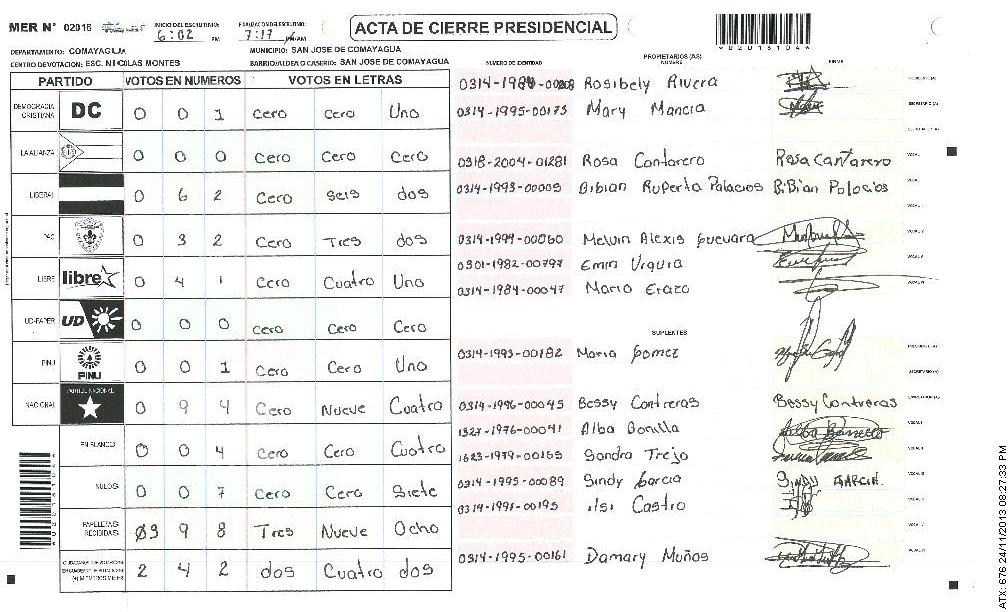 MER N° 02016 INICIO DEL ESCRUTINIO: 6:02 PM FINALIZACION DEL ESCRUTINIO: 7:17 PM/AM ACTA DE CIERRE PRESIDENCIAL
DEPARTAMENTO: COMAYAGUA MUNICIPIO: SAN JOSE DE COMAYAGUA
CENTRO DE VOTACION: ESC. NICOLAS MONTES BARRIO/ALDEA O CASERIO: SAN JOSE DE COMAYAGUA
PARTIDO VOTOS EN NUMEROS VOTOS EN LETRAS
DEMOCRACIA CRISTIANA DC 0 0 1 Cero Cero Uno
LA ALIANZA 0 0 0 Cero Cero Cero
LIBERAL 0 6 2 Cero Seis dos
PAC 0 3 2 Cero Tres dos
LIBRE libre 0 4 1 Cero Cuatro Uno
UD-FAPER UD 0 0 0 Cero Cero Cero
PINU PINU 0 0 1 Cero Cero Uno
NACIONAL PARTIDO NACIONAL 0 9 4 Cero Nueve Cuatro
EN BLANCO 0 0 4 Cero Cero Cuatro
NULOS 0 0 7 Cero Cero Siete
PAPELETAS RECIBIDAS 03 9 8 Tres Nueve Ocho
2 4 2 dos Cuatro dos
NUMERO DE IDENTIDAD PROPIETARIOS (AS) NOMBRE FIRMA
Rosibely Rivera
0314-1995-00173 Mary Mancia
0318-2004-01281 Rosa Cantarero Rosa Cantarero
0314-1993-00005 Bibian Ruperta Palacios BiBian Palacios
0314-1994-00060 Melvin Alexis Guevara
0301-1982-00797 Emin Urquia
0314-1984-00047 Mario Erazo
SUPLENTES
0314-1993-00182 Maria Gomez
0314-1996-00045 Bessy Contreras Bessy Contreras
1327-1976-00041 Alba Bonilla
1623-1979-00165 Sandra Trejo
0314-1995-00089 Sindy Garcia SINDY GARCIA
0314-1991-00195 Ilsi Castro
0314-1995-00161 Damary Muños
ATX: 676 24/11/2013 08:27:33 PM